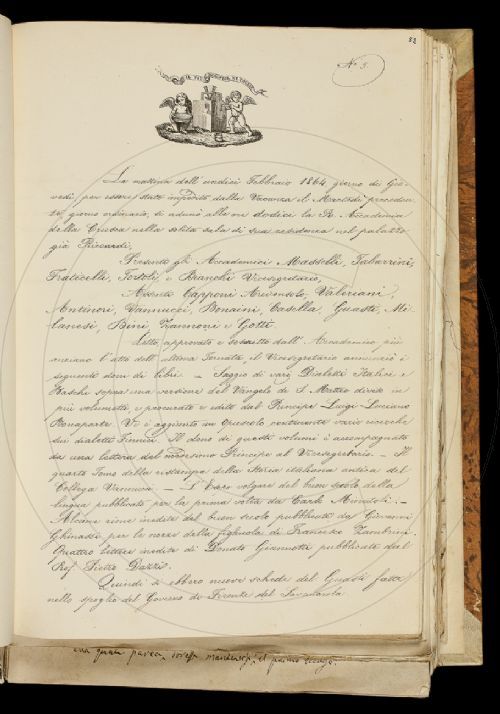 82
N° 5.
IL PIÙ BEL FIOR NE COGLIE
La mattina dell'undici Febbraio 1864 giorno di Gio-
vedì per essere stato impedito dalla Vacanza il Martedì preceden-
te giorno ordinario, si adunò alle ore dodici la R. Accademia
della Crusca nella solita sala di sua residenza nel palazzo
già Riccardi,
Presenti gli Accademici Masselli, Tabarrini,
Fraticelli, Tortoli, e Bianchi Vicesegretario,
Assenti Capponi Arciconsolo, Valeriani,
Antinori, Vannucci, Bonaini, Casella, Guasti, Mi-
lanesi, Bini, Zannoni e Gotti.
Letto, approvato e soscritto dall'Accademico più
anziano l'atto dell'ultima Tornata, il Vicesegretario annunciò i
seguenti doni di libri. — Saggio di varj Dialetti Italici e
Baschi sopra una versione del Vangelo di S. Matteo diviso in
più volumetti, e procurato e edito dal Principe Luigi Luciano
Bonaparte. Vi è aggiunto un Opuscolo contenente varie ricerche
sui dialetti Finnici. Il dono di questi volumi è accompagnato
da una lettera del medesimo Principe al Vicesegretario. — Il
quarto Tomo della ristampa della Storia italiana antica del
Collega Vannucci. — L'Esopo volgare del buon secolo della
lingua pubblicato per la prima volta da Carlo Minutoli. —
Alcune rime inedite del buon secolo pubblicate da Giovanni
Ghinassi, per le nozze della figliuola di Francesco Zambrini.
Quattro lettere inedite di Donato Giannotti pubblicate dal
Prof. Pietro Dazzi.
Quindi si ebbero nuove schede del Guasti fatte
nello spoglio del Governo di Firenze del Savonarola